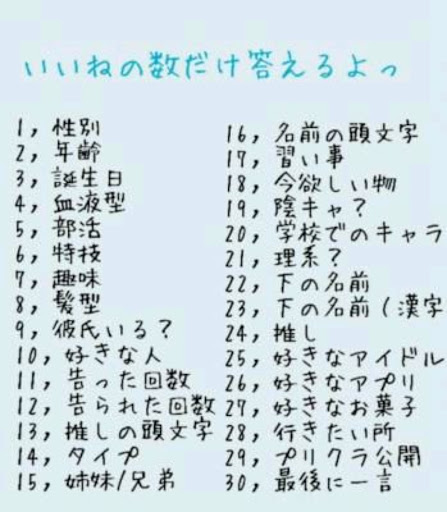 いいねの数だけ答えるよっ
1, 性別
2, 年齢
3, 誕生日
4, 血液型
5, 部活
6, 特技
7, 趣味
8, 髪型
9, 彼氏いる?
10, 好きな人
11, 告った回数
12, 告られた回数
13, 推しの頭文字
14, タイプ
15, 姉妹/兄弟
16, 名前の頭文字
17, 習い事
18, 今欲しい物
19, 陰キャ?
20, 学校でのキャラ
21, 理系?
22, 下の名前
23, 下の名前(漢字
24, 推し
25, 好きなアイドル
26, 好きなアプリ
27, 好きなお菓子
28, 行きたい所
29, プリクラ公開
30, 最後に一言